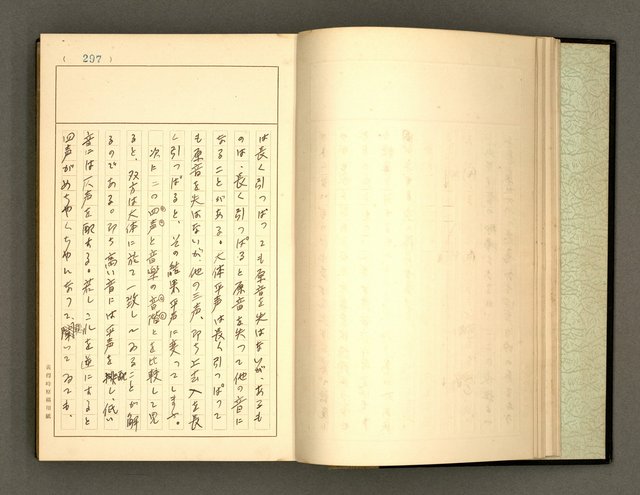 (297)
は長く引つぱつても原音を失はないが、あるも
のは、長く引つぱると原音を失つて他の音に
なることがある。大体平声は長く引つぱつて
も原音を失はないが、他の三声、即ち上去入を長
く引つぱると、その結果平声に変つてしまふ。
次にこの四声と音楽の音階とを比較して見
ると、双方は大体に於て一致してゐることが解
るのである。即ち高い音には平声を配し、低い
音には仄声を配する。若しこれを逆にすると
四声がめちやくちやになつて、聞いてゐても、